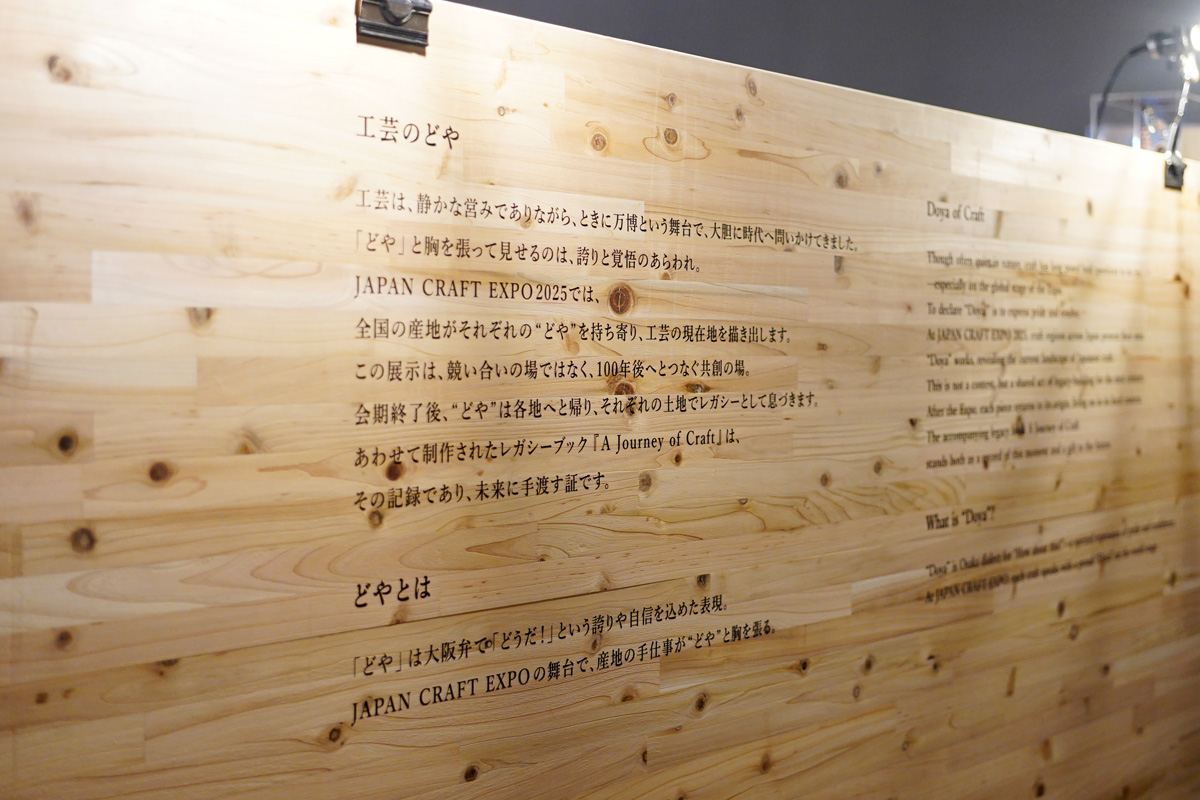 工芸のどや
工芸は、静かな営みでありながら、ときに万博という舞台で、大胆に時代へ問いかけてきました。
「どや」と胸を張って見せるのは、誇りと覚悟のあらわれ。
JAPAN CRAFT EXPO2025では、
全国の産地がそれぞれの“どや”を持ち寄り、工芸の現在地を描き出します。
この展示は、競い合いの場ではなく、100年後へとつなぐ共創の場。
会期終了後、“どや”は各地へと帰り、それぞれの土地でレガシーとして息づきます。
あわせて制作されたレガシーブック『A Journey of Craft』は、
その記録であり、未来に手渡す証です。
どやとは
「どや」は大阪弁で「どうだ！」という誇りや自信を込めた表現。
JAPAN CRAFT EXPOの舞台で、産地の手仕事が“どや”と胸を張る。
Doya of Craft
Though often quiet in nature, craft has long
—especially on the global stage of the Expo.
To declare “Doya” is to express pride and
At JAPAN CRAFT EXPO 2025, craft regions across Japan present their
“Doya” works, revealing the current landscape of Japanese craft.
This is not a contest, but a shared act of legacy-building for the next century.
After the Expo, each piece returns to its origin, living on as its
The accompanying legacy book A Journey of Craft
stands both as a record of this moment and a gift to the future.
What is “Doya”?
“Doya” is Osaka dialect for “How about this!”—a spirited expression of pride and confidence.
At JAPAN CRAFT EXPO, each craft speaks with a proud “Doya!” on the world stage.